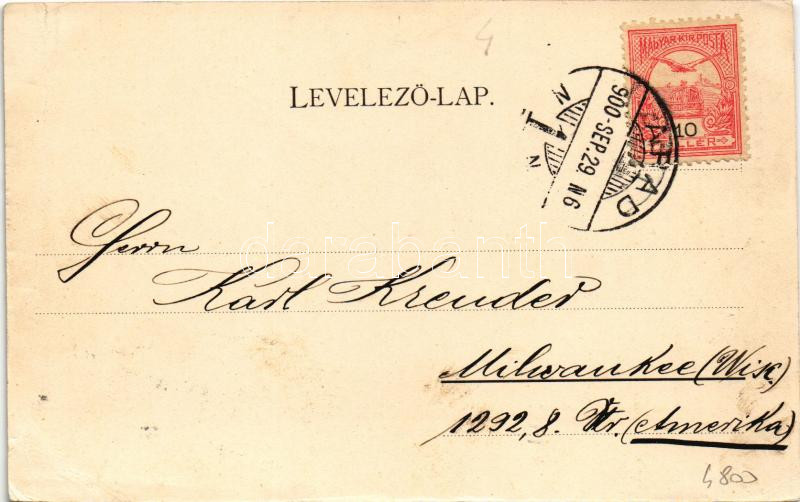 4
MAGYAR KIR. POSTA
LEVELEZŐ-LAP.
900-SEP.29. N6
10
Herrn
darabanth
Karl Kreuder
Milwaukee (Wisc.)
1292, 8. Str. (Amerika)
4800